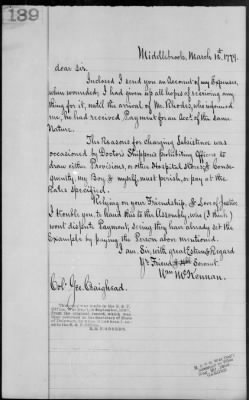 139
Middlebrook, March 15th. 1779.
dear Sir.
Inclosed I send you an Account of my Expenses,
when wounded; I had given up all hopes of receiving any
thing for it, until the arrival of Mr. Rhodes, who informed
me, he had received Payment for an Acct. of the same
Nature.
The Reasons for charging Subsistence was
occasioned by Doctor Shippen's prohibiting Officers to
draw either Provisions, or other Hospital Stores, & Conse-
quently, my Boy & myself, must perish, or pay at the
Rates specified.
Relying on your Friendship, & Love of Justice
I trouble you, to hand this to the Assembly, who (I think)
wont dispute Payment, seeing they have already set the
Example by paying the Person above mentioned.
I am, Sir, with great Esteem & Regard
Yr. Friend & Hble Servant.
Wm McKennan.
Colo. Geo. Craighead.
This copy was made in the R. & P.
from the original record, which was
of Delaware, by whom it had been
to the R. & P. Office.
R. & P.